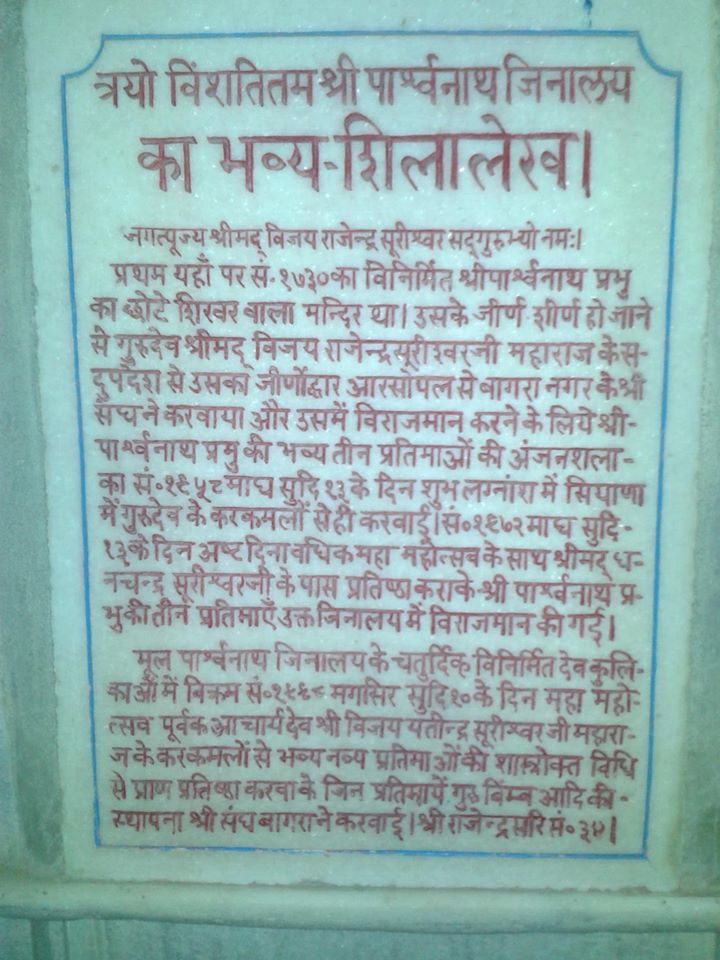 त्रयो विंशतितम श्री पार्श्वनाथ जिनालय
का भव्य-शिलालेख।
जगत्पूज्य श्रीमद् विजय राजेन्द्र सूरीश्वर सद्गुरुभ्यो नमः।
प्रथम यहाँ पर सं. १७३० का विनिर्मित श्रीपार्श्वनाथ प्रभु
का छोटे शिखर वाला मन्दिर था। उसके जीर्ण शीर्ण हो जाने
से गुरुदेव श्रीमद् विजय राजेन्द्रसूरीश्वरजी महाराज के स-
दुपदेश से उसका जीर्णोद्धार आरसोपल से बागरा नगर के श्री
संघ ने करवाया और उसमें विराजमान करने के लिये श्री-
पार्श्वनाथ प्रभु की भव्य तीन प्रतिमाओं की अंजनशला-
का सं॰१९५८ माघ सुदि १३ के दिन शुभ लग्नांश में सियाणा
में गुरुदेव के करकमलों से ही करवाई। सं॰१९७२ माघ सुदि-
१३ के दिन अष्ट दिनावधिक महा महोत्सव के साथ श्रीमद् ध-
नचन्द्र सूरीश्वरजी के पास प्रतिष्ठा कराके श्री पार्श्वनाथ प्र-
भु की तीन प्रतिमाएँ उक्त जिनालय में विराजमान की गई।
मूल पार्श्वनाथ जिनालय के चतुर्दिक विनिर्मित देव कुलि-
काओं में विक्रम सं॰ मगसिर सुदि १० के दिन महा महो-
त्सव पूर्वक आचार्यदेव श्री विजय यतीन्द्र सूरीश्वर जी महारा-
ज के करकमलों से भव्य नव्य प्रतिमाओं की शास्त्रोक्त विधि
से प्राण प्रतिष्ठा करवा के जिन प्रतिमायें गुरु बिम्ब आदि की-
स्थापना श्री संघ बागरा ने करवाई। श्री राजेन्द्रसूरि सं॰